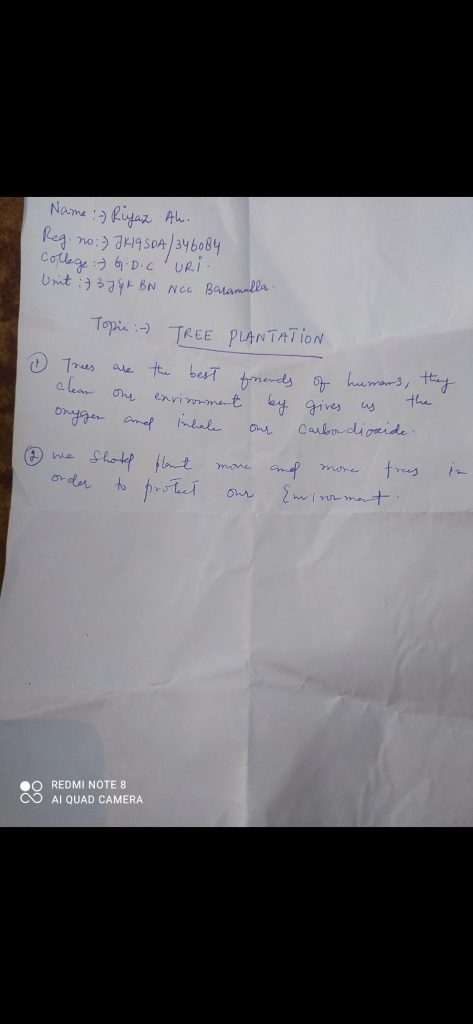 Name :→ Riyaz Ah.
Reg. no :→ JK19SDA/346084
College :→ G.D.C URI.
Unit :→ 3 J&K BN NCC Baramulla.
Topic :→ TREE PLANTATION
① Trees are the best friends of humans, they
clean our environment by gives us the
oxygen and inhale our Carbondioxide.
② we Should plant more and more trees in
order to protect our Environment.
REDMI NOTE 8
AI QUAD CAMERA